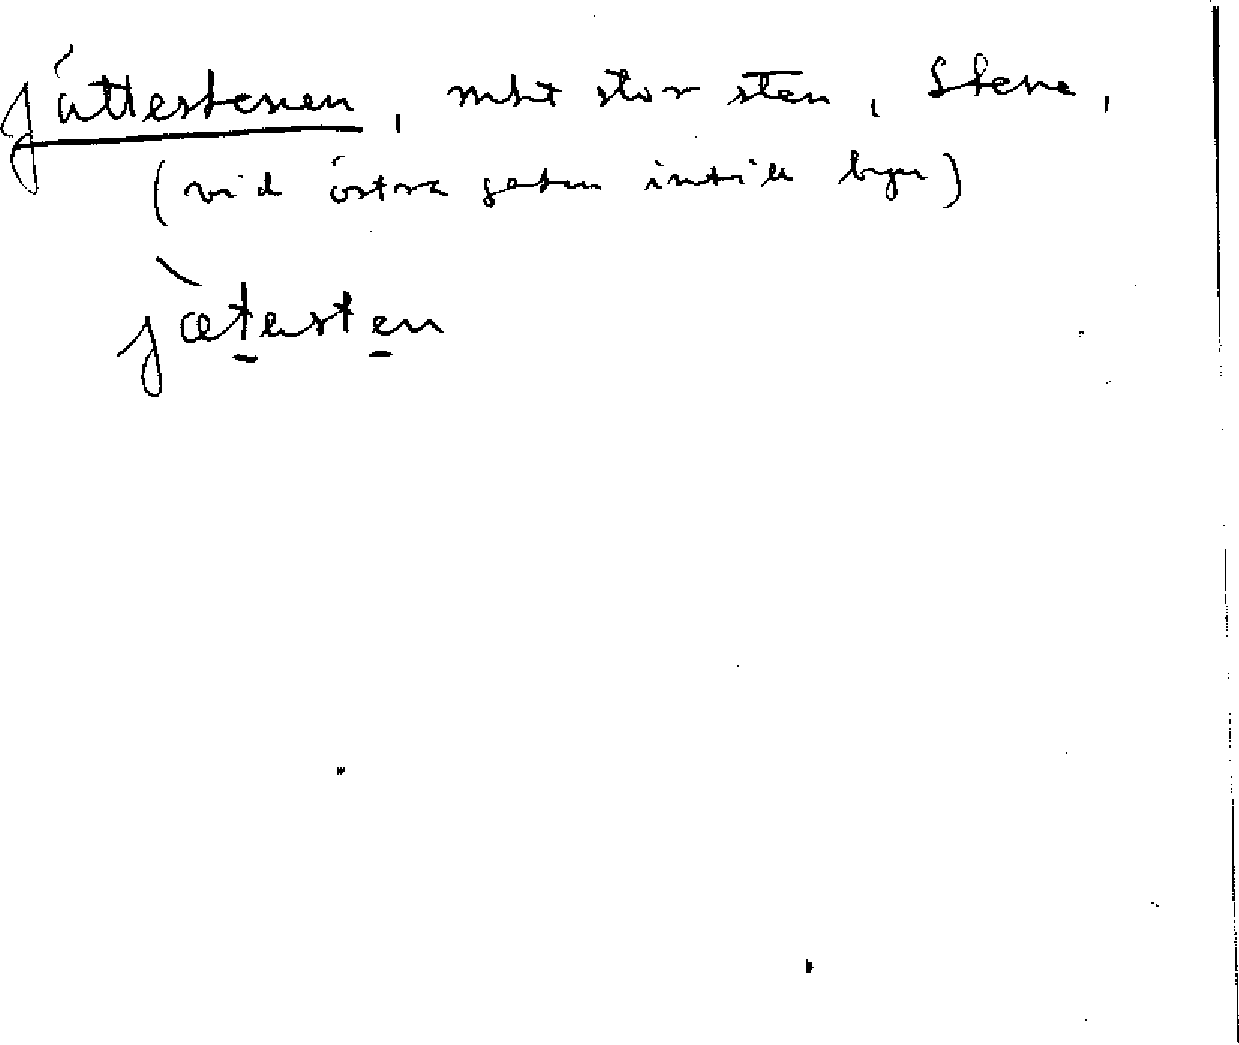 Jättestenen, mkt stor sten, Stene,
(vid östra gaten intill byn)
jætesten